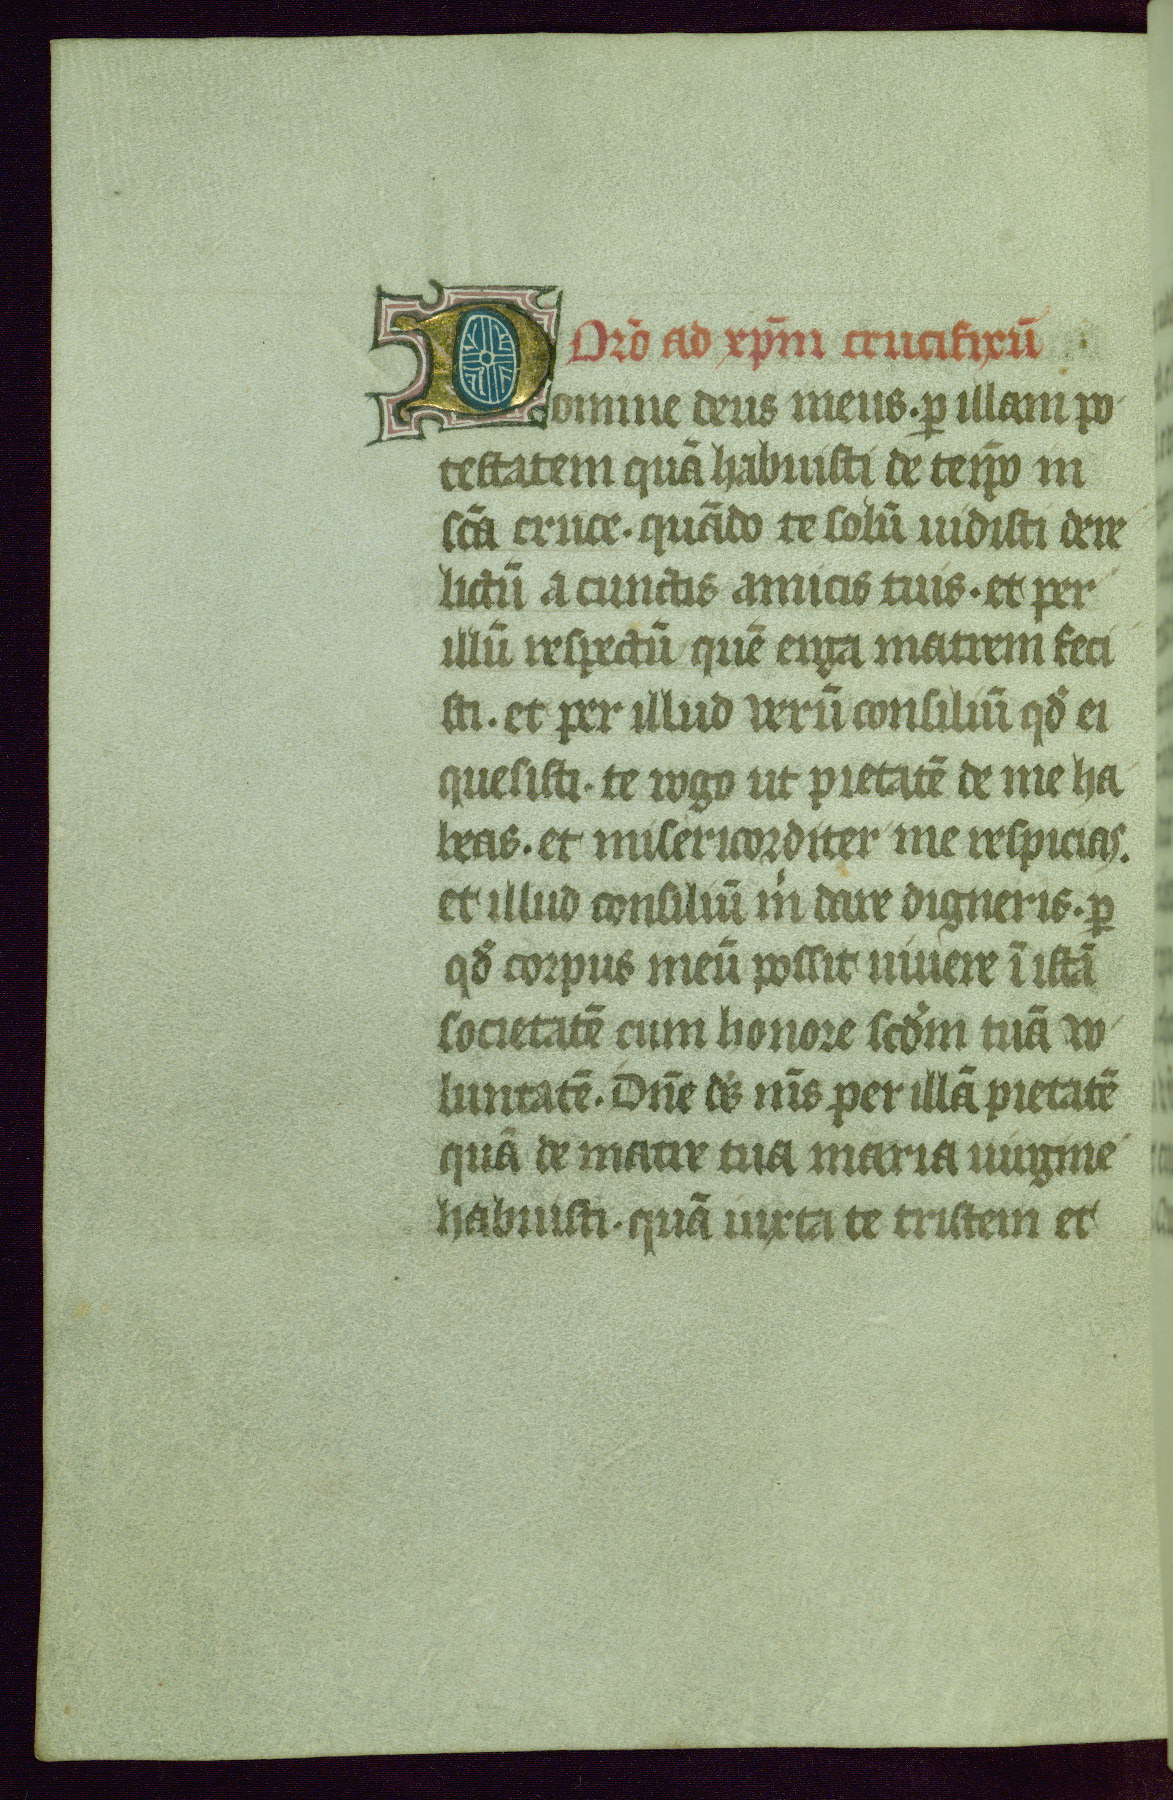 Orō ad xp̄m crucifixū
Domine deus meus. ꝑ illam po
testatem quā habuisti de temꝑo in
sc̄a cruce. quādo te solū uidisti dere
lictū a cunctis amicis tuis. et per
illū respectū quē erga matrem feci
sti. et per illud verū consiliū qd̓ ei
quesisti. te rogo ut pietatē de me ha
beas. et misericorditer me respicias.
et illud consiliū m̓ dare digneris. ꝑ
qd̓ corpus meū possit uiuere ī istā
societatē cum honore scd̓m tuā vo
luntatē. Dn̄e ds̓ ms̄ per illā pietatē
quā de matre tua maria uirgine
habuisti. quā iuxta te tristem et